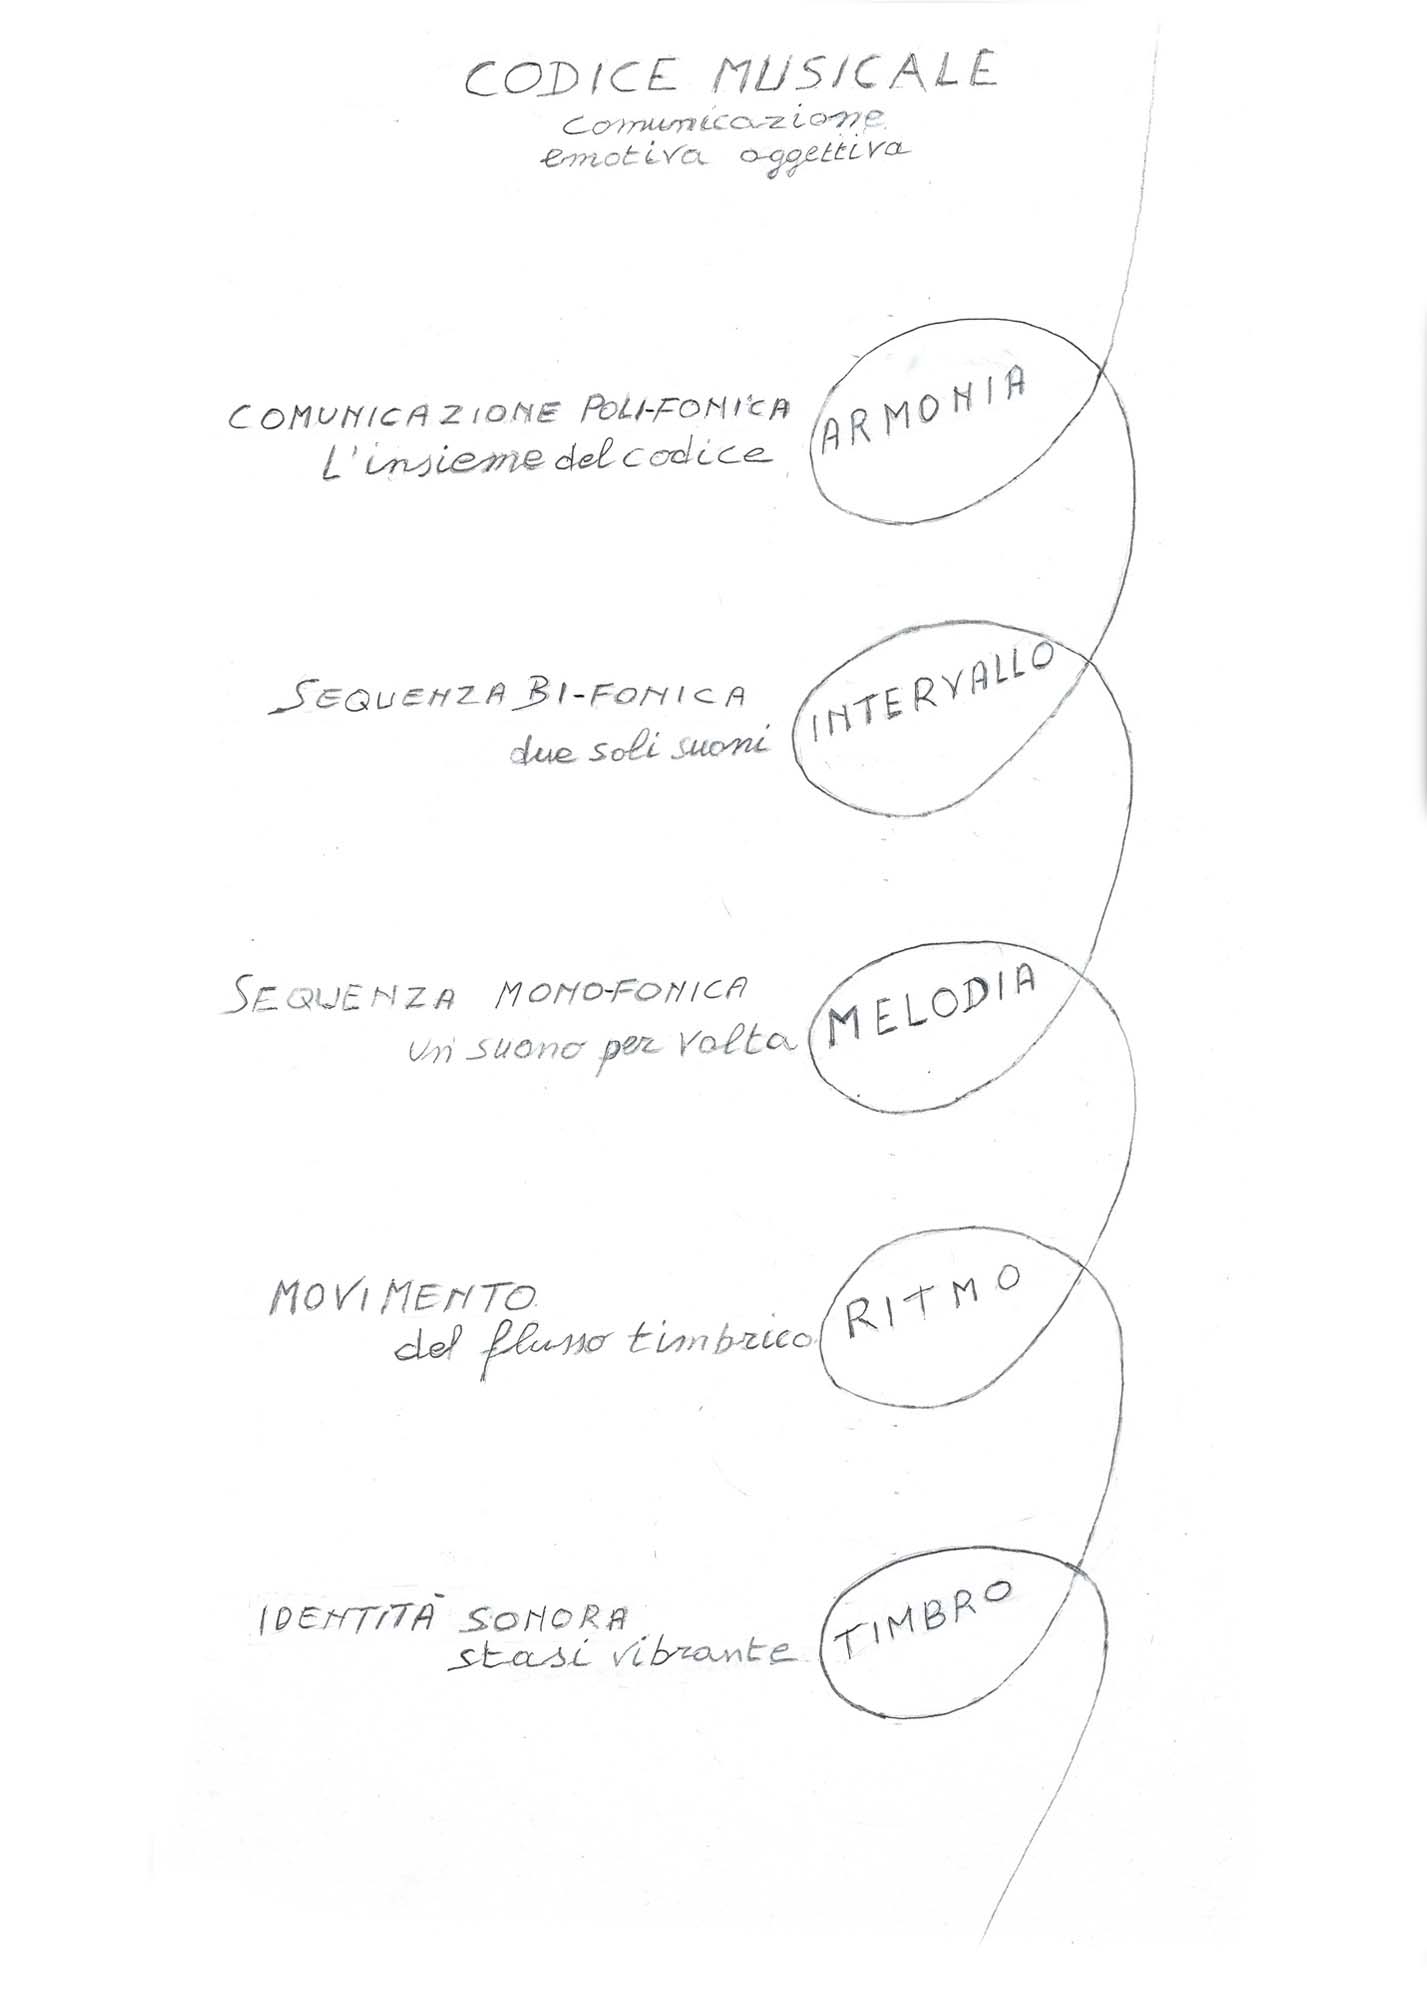 CODICE MUSICALE
comunicazione
emotiva oggettiva
COMUNICAZIONE POLI-FONICA
L'insieme del codice
ARMONIA
SEQUENZA BI-FONICA
due soli suoni
INTERVALLO
SEQUENZA MONO-FONICA
un suono per volta
MELODIA
MOVIMENTO
del flusso timbrico
RITMO
IDENTITÀ SONORA
stasi vibrante
TIMBRO